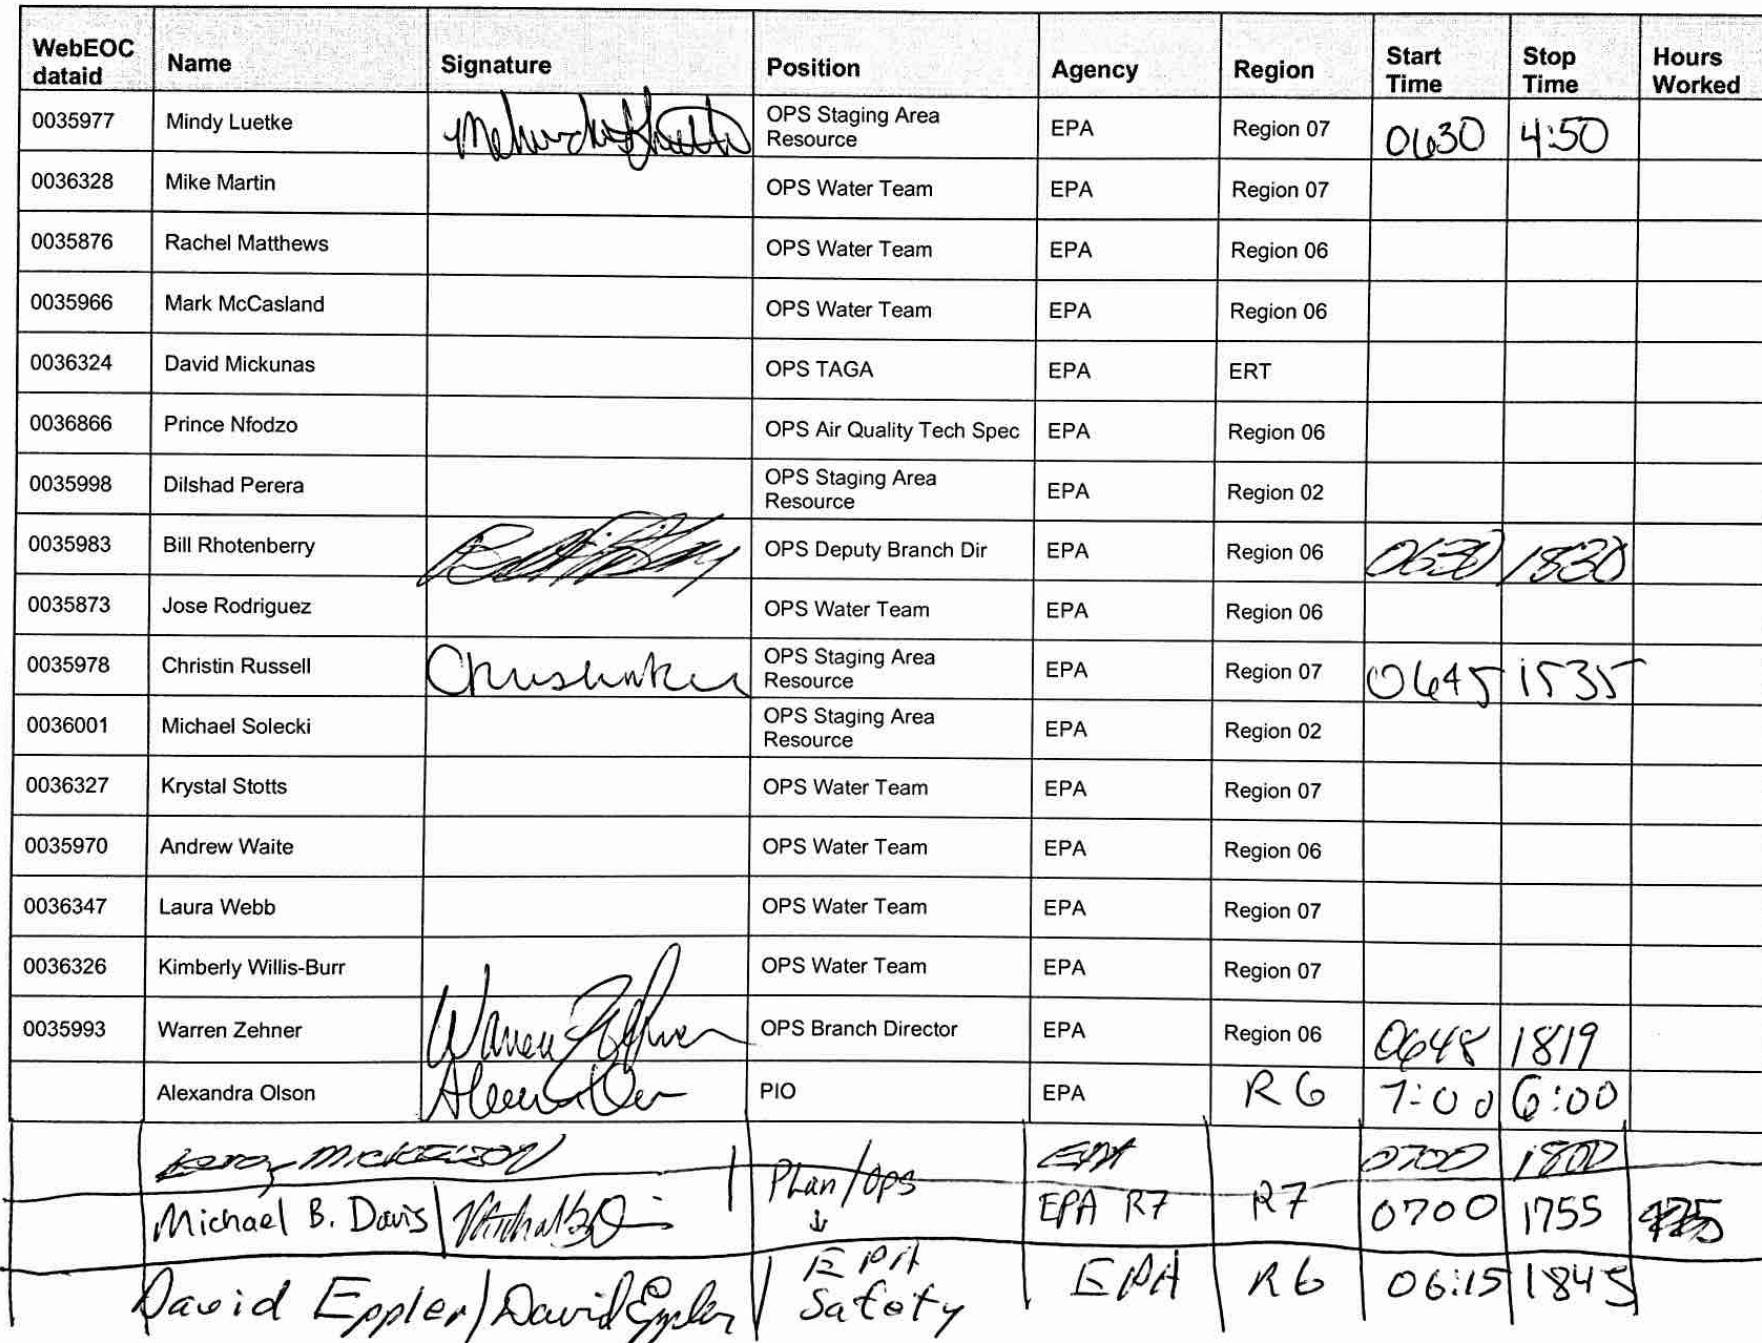 WebEOC dataid Name Signature Position Agency Region Start Time Stop Time Hours Worked
0035977 Mindy Luetke OPS Staging Area Resource EPA Region 07 0630 4:50
0036328 Mike Martin OPS Water Team EPA Region 07
0035876 Rachel Matthews OPS Water Team EPA Region 06
0035966 Mark McCasland OPS Water Team EPA Region 06
0036324 David Mickunas OPS TAGA EPA ERT
0036866 Prince Nfodzo OPS Air Quality Tech Spec EPA Region 06
0035998 Dilshad Perera OPS Staging Area Resource EPA Region 02
0035983 Bill Rhotenberry OPS Deputy Branch Dir EPA Region 06 0630 1830
0035873 Jose Rodriguez OPS Water Team EPA Region 06
0035978 Christin Russell OPS Staging Area Resource EPA Region 07 0645 1535
0036001 Michael Solecki OPS Staging Area Resource EPA Region 02
0036327 Krystal Stotts OPS Water Team EPA Region 07
0035970 Andrew Waite OPS Water Team EPA Region 06
0036347 Laura Webb OPS Water Team EPA Region 07
0036326 Kimberly Willis-Burr OPS Water Team EPA Region 07
0035993 Warren Zehner Warren Zehner OPS Branch Director EPA Region 06 0648 1819
Alexandra Olson PIO EPA R6 7:00 6:00
EPA 0700 1800
Michael B. Davis Plan/Ops EPA R7 R7 0700 1755
David Eppler / David Eppler EPA Safety EPA R6 06:15 1845